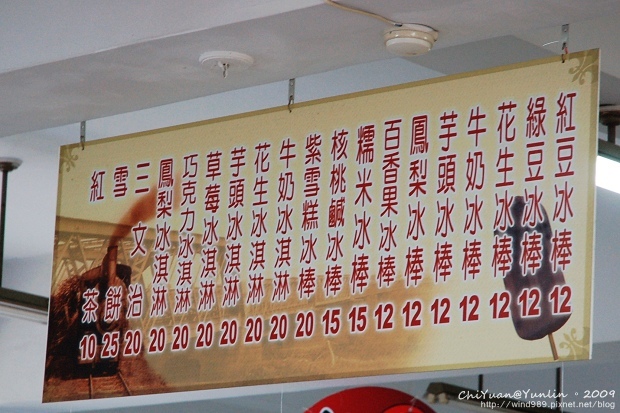 紅豆冰棒12
綠豆冰棒12
花生冰棒12
牛奶冰棒12
芋頭冰棒12
鳳梨冰棒12
百香果冰棒12
糯米冰棒15
核桃鹹冰棒15
紫雪糕冰棒20
牛奶冰淇淋20
花生冰淇淋20
芋頭冰淇淋20
草莓冰淇淋20
巧克力冰淇淋20
鳳梨冰淇淋20
三文治20
雪餅25
紅茶10
ChiYuan@Yunlin 。2009
http://wind989.pixnet.net/blog